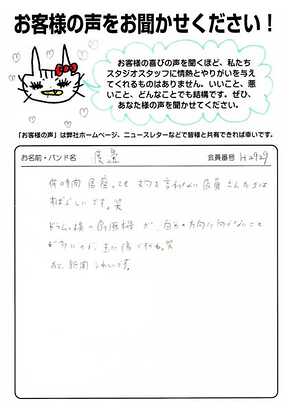 お客様の声をお聞かせください！
お客様の喜びの声を聞くほど、私たち
スタジオスタッフに情熱とやりがいを与え
てくれるものはありません。いいこと、悪
いこと、どんなことでも結構です。ぜひ、
あなた様の声を聞かせてください。
「お客様の声」は弊社ホームページ、ニュースレターなどで皆様と共有できれば幸いです。
お名前・バンド名
会員番号 H2929
何時間居座っても文句を言わない店員さんたちは
すばらしいです。笑
ドラム横の扇風機が自分の方向に向かないこと